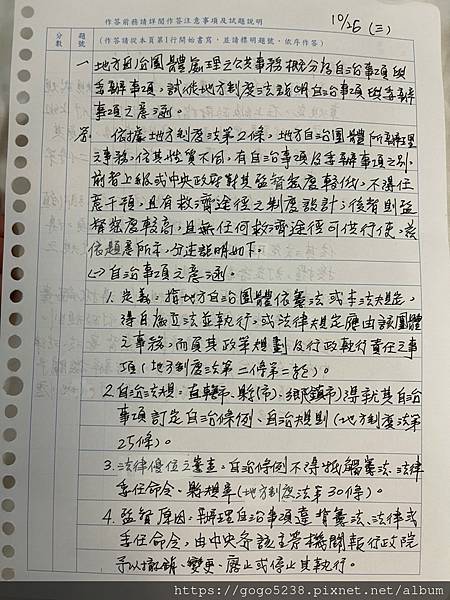 作答前務請詳閱作答注意事項及試題說明
10/26 (三)
分數
題號
(作答請從本頁第1行開始書寫,並請標明題號,依序作答)
一 地方自治團體處理之公共事務概分為自治事項與
委辦事項,試依地方制度法說明自治事項與委辦
事項之意涵。
答: 依據地方制度法第2條,地方自治團體所辦理
之事務,依其性質不同,有自治事項及委辦事項之別,
前者上級或中央政府對其監督密度較低,不得任
意干預,且有救濟途徑之制度設計;後者則監
督密度較高,且無任何救濟途徑可供行使,茲
依題意所示,分述說明如下。
(一)自治事項之意涵。
1. 定義:指地方自治團體依憲法或本法規定,
得自為立法並執行,或法律規定應由該團體
之事務,而負其政策規劃及行政執行責任之事
項(地方制度法第二條第二款)。
2. 自治法規:直轄市、縣(市)、鄉(鎮市)得就其自治
事項訂定自治條例、自治規則(地方制度法第
25條)。
3. 法律優位之審查:自治條例不得牴觸憲法、法律
委任命令、縣規章(地方制度法第30條)。
4. 監督原因:辦理自治事項違背憲法、法律或
委任命令,由中央各該主管機關報行政院
予以撤銷、變更、廢止或停止其執行。
https://gogo5238.pixnet.net/album